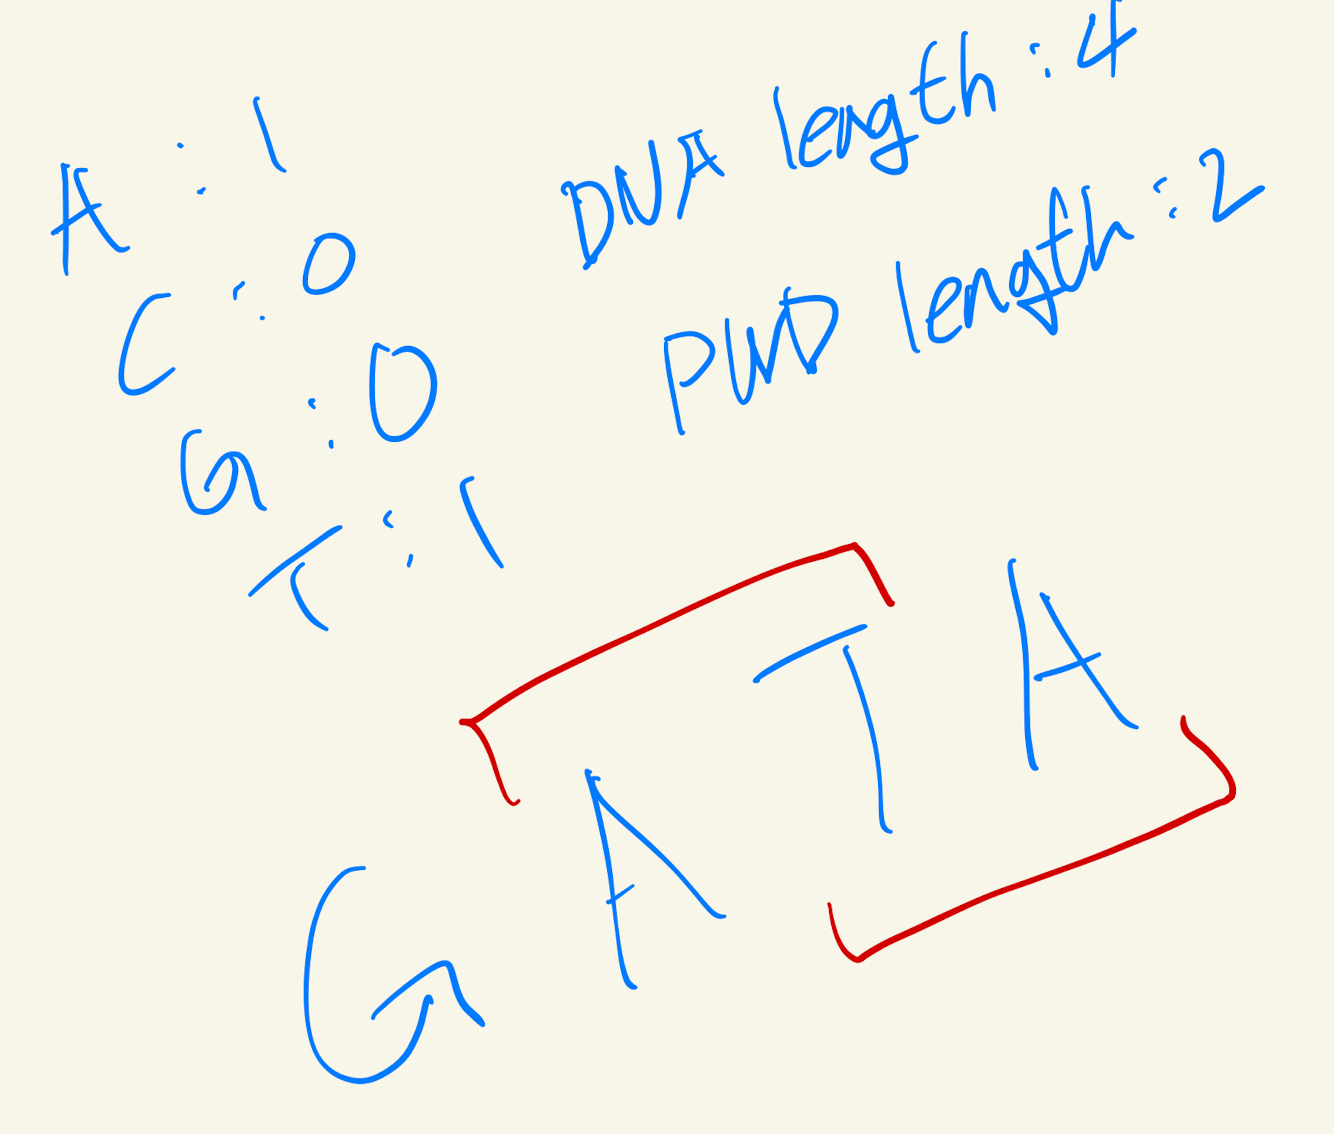 A : 1
C : 0
G : 0
T : 1
DNA length : 4
PWD length : 2
G A T A